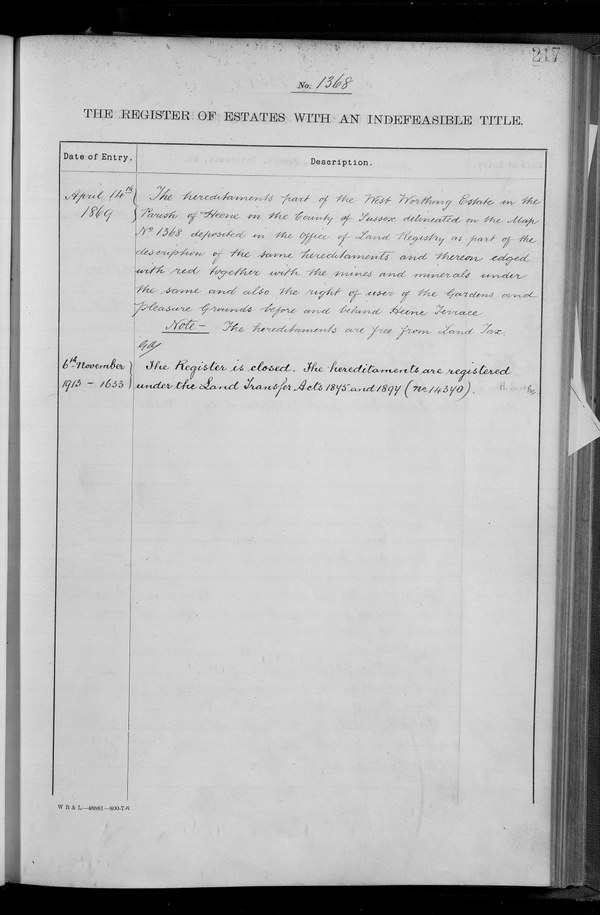 217
No. 1368
THE REGISTER OF ESTATES WITH AN INDEFEASIBLE TITLE.
Date of Entry. Description.
April 14th 1869 The hereditaments part of the West Worthing Estate in the
Parish of Heene in the County of Sussex delineated on the Map
No 1368 deposited in the Office of Land Registry as part of the
description of the same hereditaments and thereon edged
with red together with the mines and minerals under
the same and also the right of user of the Gardens and
Pleasure Grounds before and behind Heene Terrace
Note – The hereditaments are free from Land Tax.
6th November The Register is closed. The hereditaments are registered
1913 – 1633 under the Land Transfer Acts 1875 and 1897 (No. 14340).
W B & L—46881—800-7-6